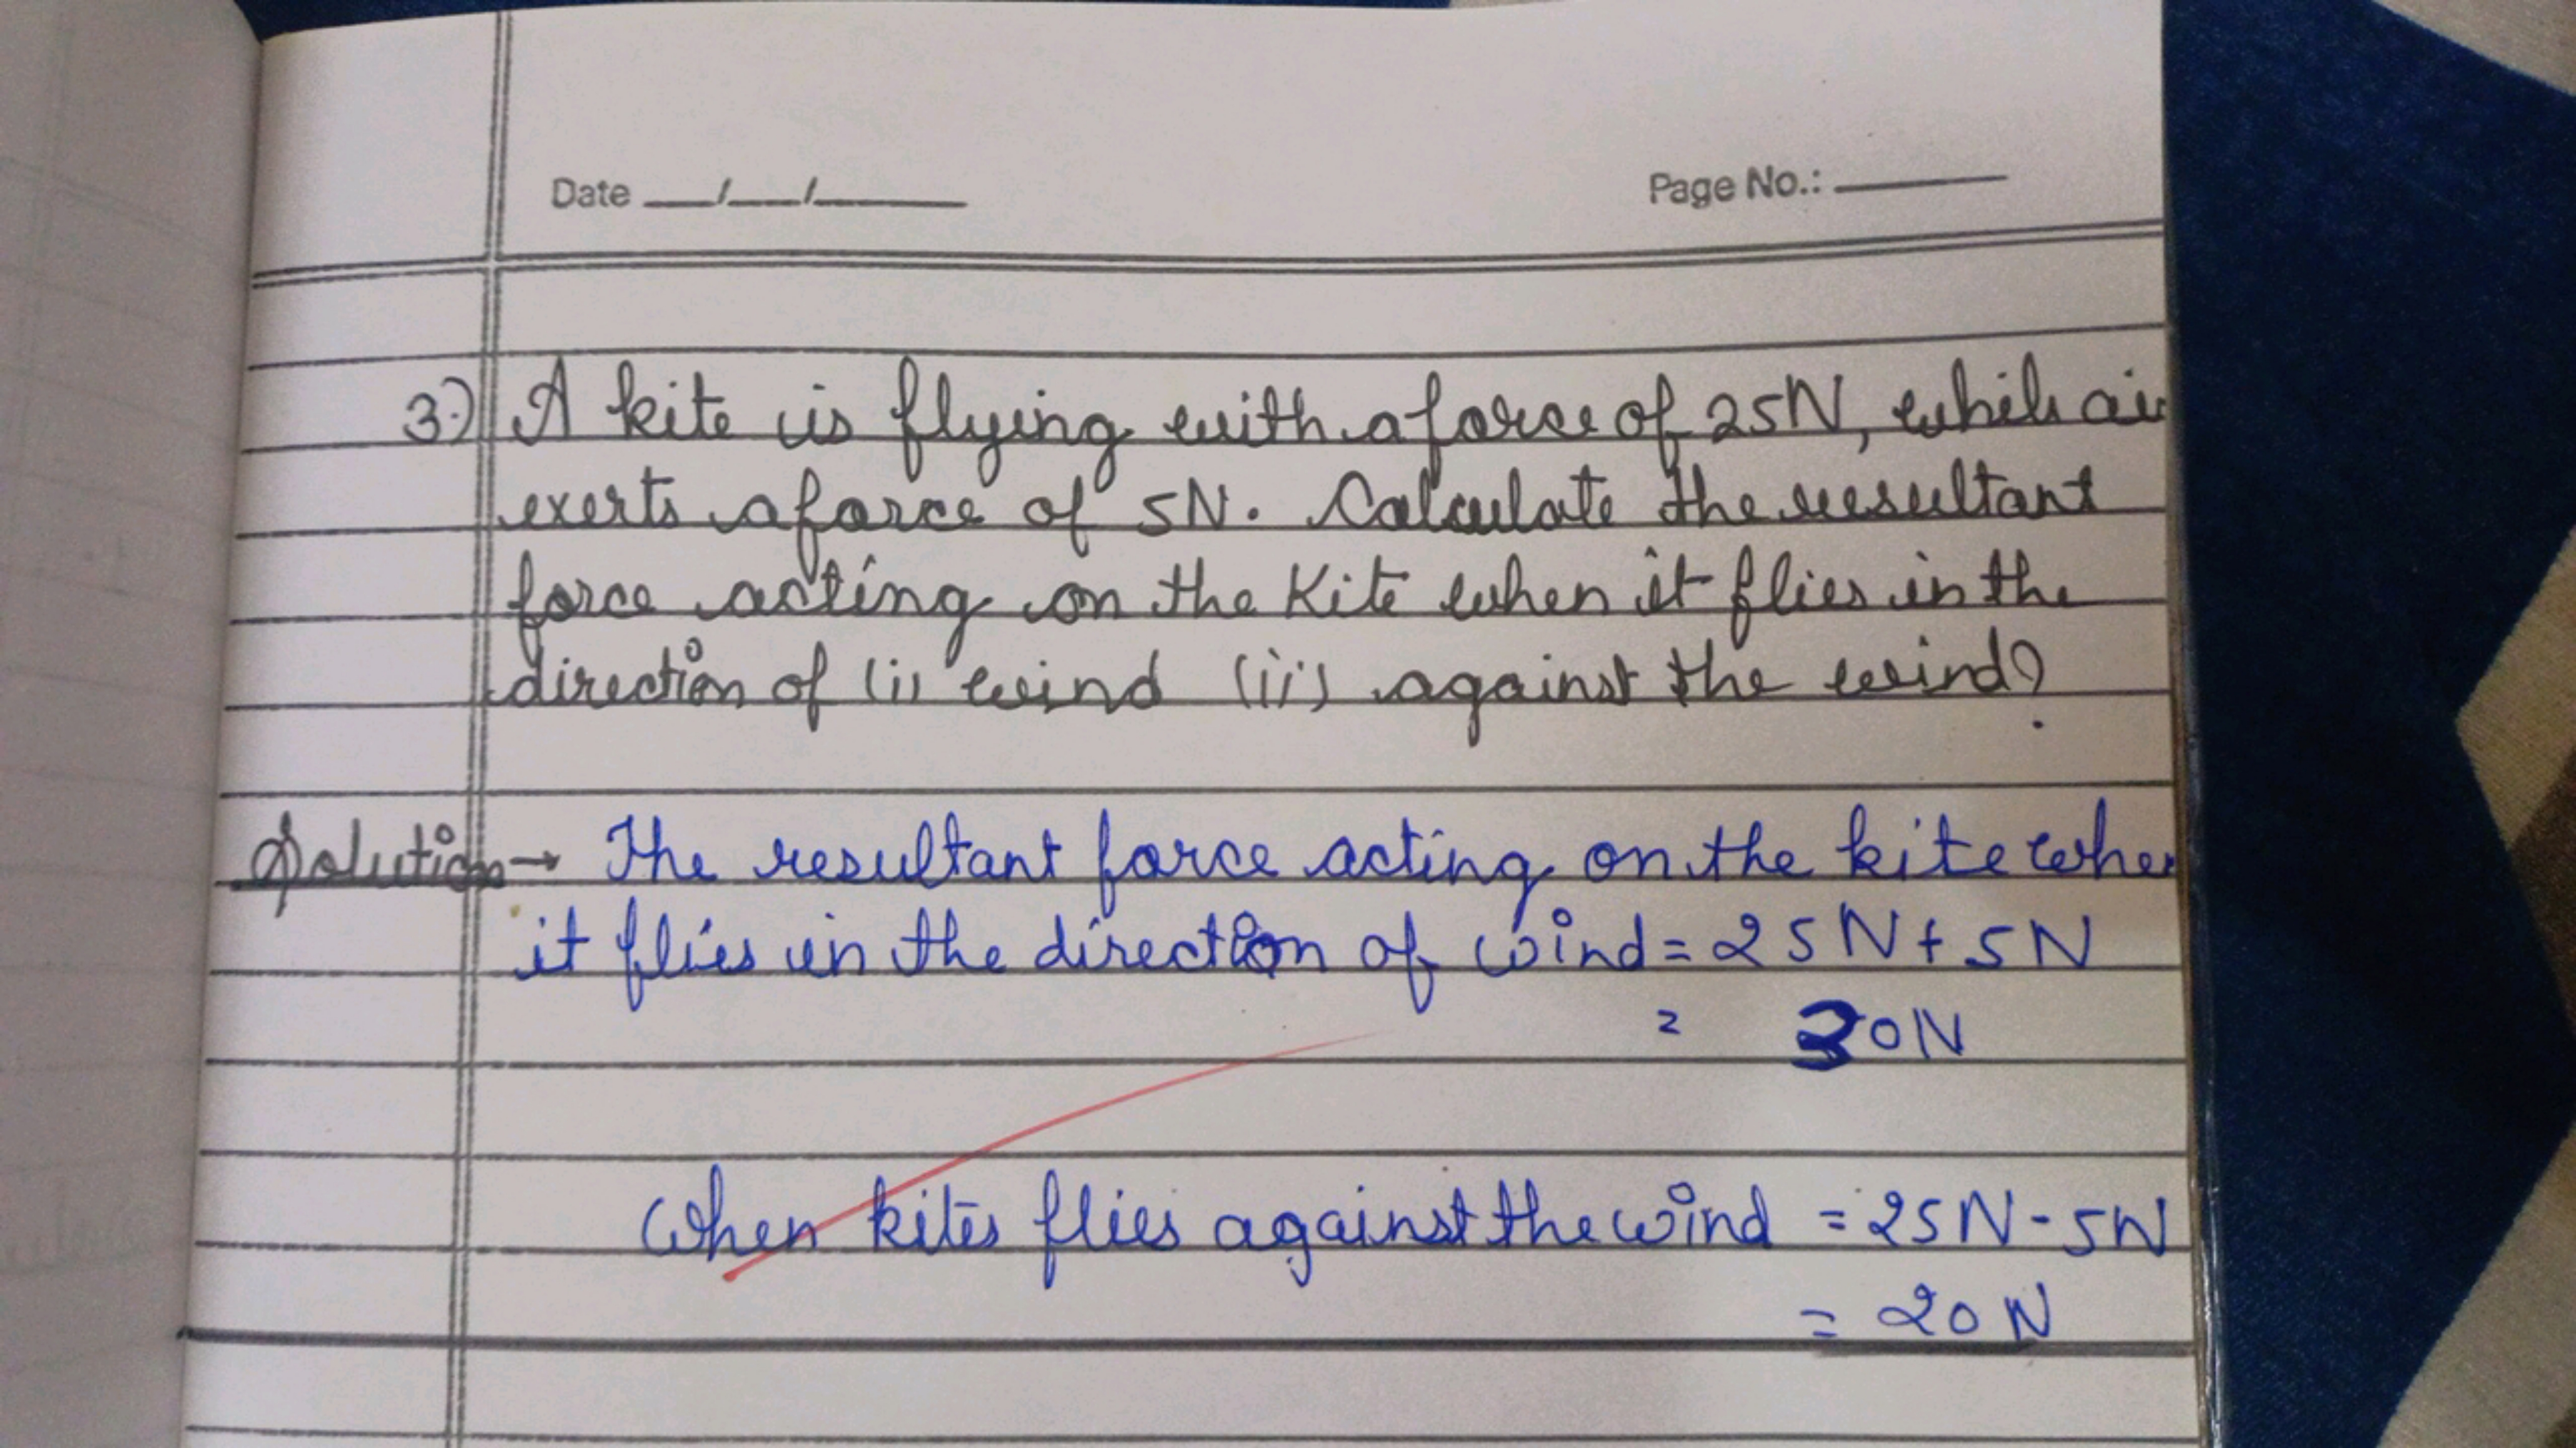 Date __/__/____ Page No.: ____
3.) A kite is flying with a force of 25N, while air
exerts a force of 5N. Calculate the resultant
force acting on the kite when it flies in the
direction of (i) wind (ii) against the wind?
Solution → The resultant force acting on the kite when
it flies in the direction of wind = 25N + 5N
= 30N
When kites flies against the wind = 25N - 5N
= 20N